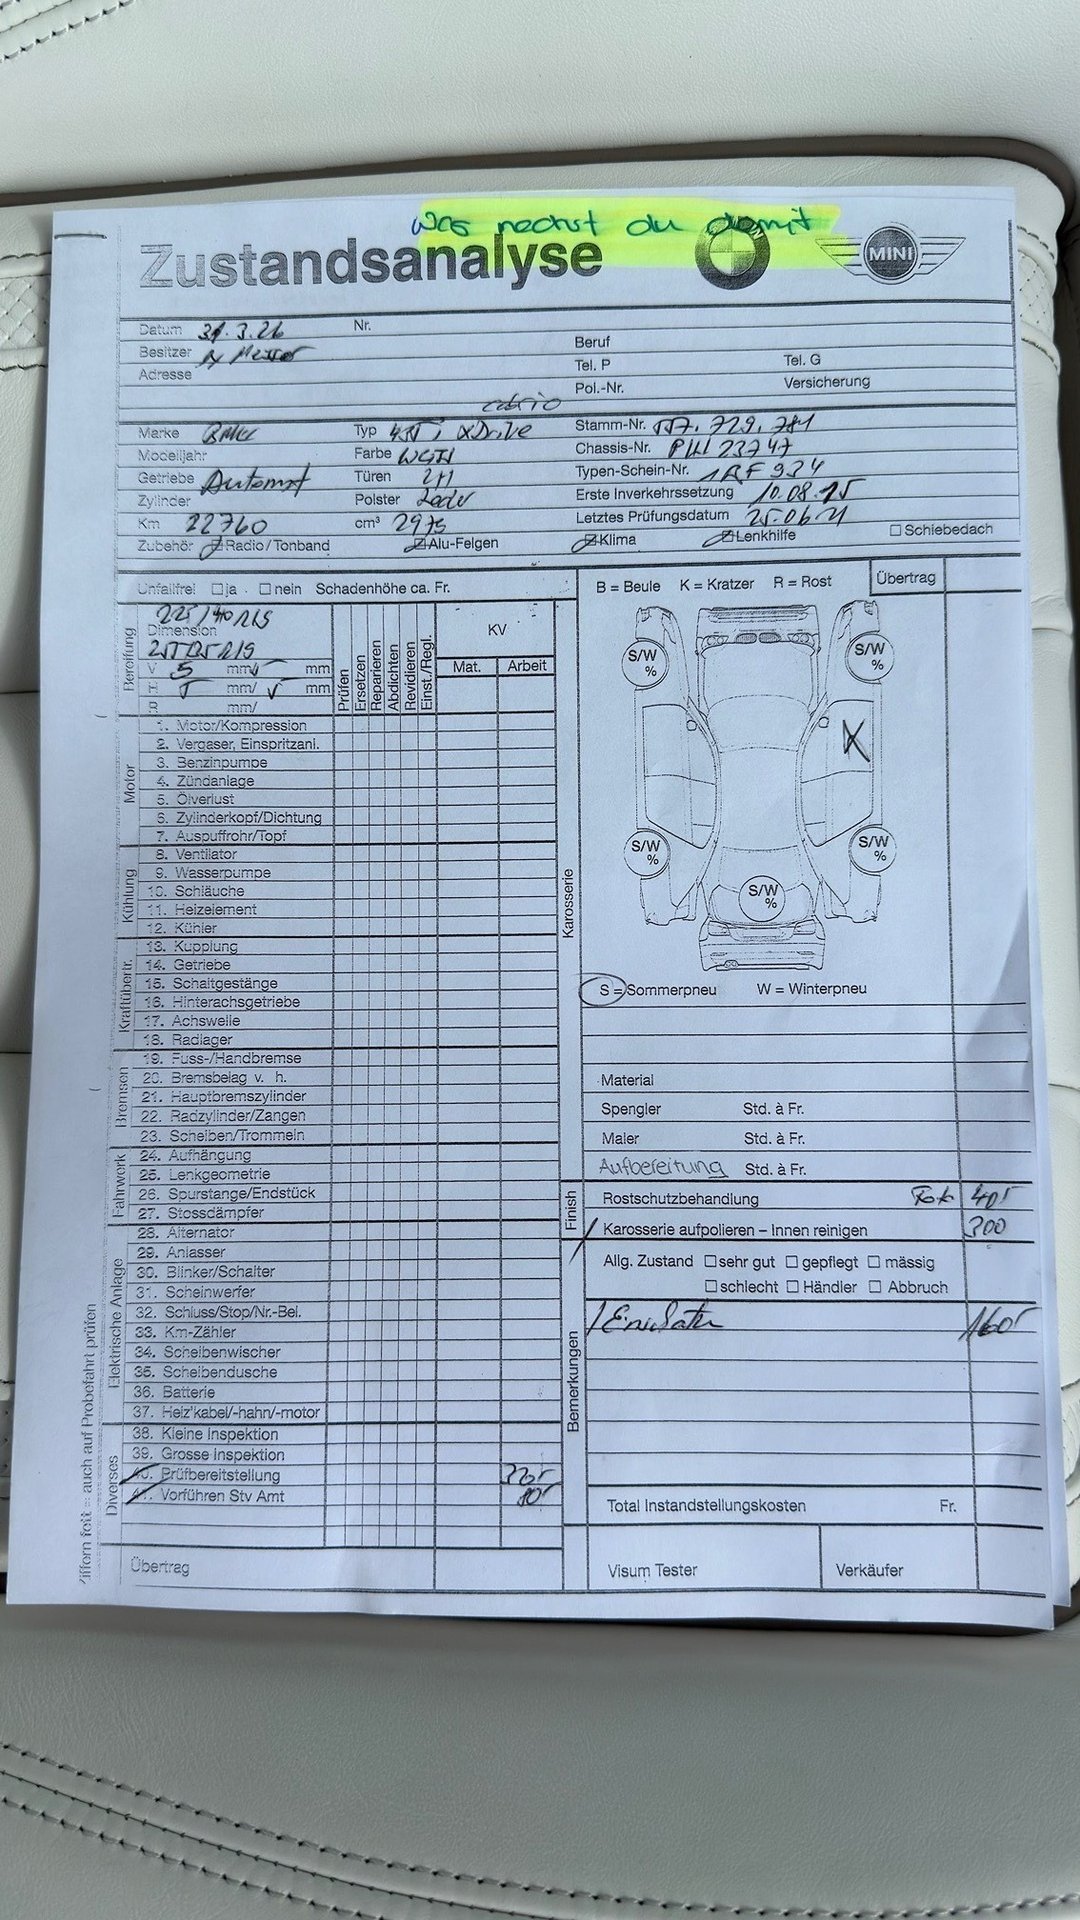 was machst du damit
Zustandsanalyse
MINI
Datum 31.3.26 Nr.
Besitzer Beruf
Adresse Tel. P Tel. G
Pol.-Nr. Versicherung
cabrio
Marke BMW Typ xDrive Stamm-Nr. 729.781
Modelljahr Farbe Chassis-Nr. 23747
Getriebe Automat Türen 2 Typen-Schein-Nr.
Zylinder Polster Leder Erste Inverkehrssetzung 10.08.15
Km 22760 cm³ 2979 Letztes Prüfungsdatum 25.06.21
Zubehör: Radio/Tonband Alu-Felgen Klima Lenkhilfe Schiebedach
Unfallfrei ja nein Schadenhöhe ca. Fr.
B = Beule K = Kratzer R = Rost Übertrag
Bereifung
225/40R19
Dimension
255/35R19
V 5 mm/ mm
H 5 mm/ 5 mm
R mm/
Prüfen
Ersetzen
Reparieren
Abdichten
Revidieren
Einst./Regl.
KV
Mat. Arbeit
Motor
1. Motor/Kompression
2. Vergaser, Einspritzanl.
3. Benzinpumpe
4. Zündanlage
5. Ölverlust
6. Zylinderkopf/Dichtung
7. Auspuffrohr/Topf
Kühlung
8. Ventilator
9. Wasserpumpe
10. Schläuche
11. Heizelement
12. Kühler
Kraftübertr.
13. Kupplung
14. Getriebe
15. Schaltgestänge
16. Hinterachsgetriebe
17. Achswelle
18. Radlager
Bremsen
19. Fuss-/Handbremse
20. Bremsbelag v. h.
21. Hauptbremszylinder
22. Radzylinder/Zangen
23. Scheiben/Trommeln
Fahrwerk
24. Aufhängung
25. Lenkgeometrie
26. Spurstange/Endstück
27. Stossdämpfer
Elektrische Anlage
28. Alternator
29. Anlasser
30. Blinker/Schalter
31. Scheinwerfer
32. Schluss/Stop/Nr.-Bel.
33. Km-Zähler
34. Scheibenwischer
35. Scheibendusche
36. Batterie
37. Heiz'kabel/-hahn/-motor
Diverses
38. Kleine Inspektion
39. Grosse Inspektion
40. Prüfbereitstellung
41. Vorführen Stv Amt 80.-
Übertrag
Ziffern fett = auch auf Probefahrt prüfen
Karosserie
S/W %
S/W %
K
S/W %
S/W %
S/W %
S = Sommerpneu W = Winterpneu
Material
Spengler Std. à Fr.
Maler Std. à Fr.
Aufbereitung Std. à Fr.
Finish
Rostschutzbehandlung
Karosserie aufpolieren – Innen reinigen 300
Allg. Zustand sehr gut gepflegt mässig
schlecht Händler Abbruch
Bemerkungen
160.-
Total Instandstellungskosten Fr.
Visum Tester Verkäufer